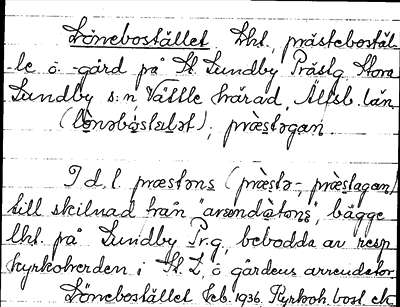 Lönebostället lht., prästebostäl-
-le o. -gård på St. Lundby Prästg Stora
Lundby s:n Vättle härad, Älfsb. län
(lönəbòstɛlət); præstəgan
I d. l. præstəns (præstə-, præstagan)
till skilnad från "arəndàtons", bägge
lht. på Lundby Pr.g., bebodda av resp
kyrkoherden i St. L. o gårdens arrendator
Lönebostället feb. 1936 Kyrkoh. bost.